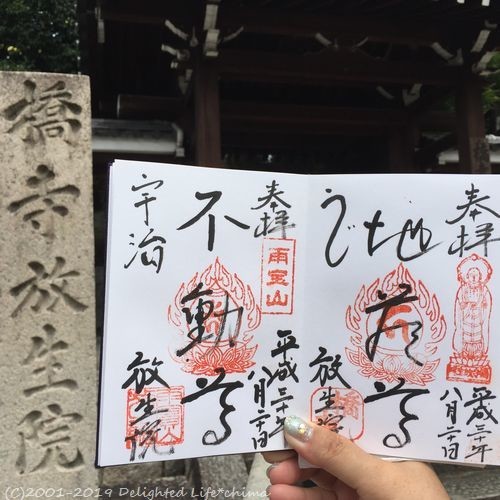 橋寺放生院
奉拝
地蔵尊
うじ
放生院
平成三十年
八月二十日
奉拝
雨宝山
不動尊
宇治
放生院
平成三十年
八月二十日
(C)2001-2019 Delighted Life*chima